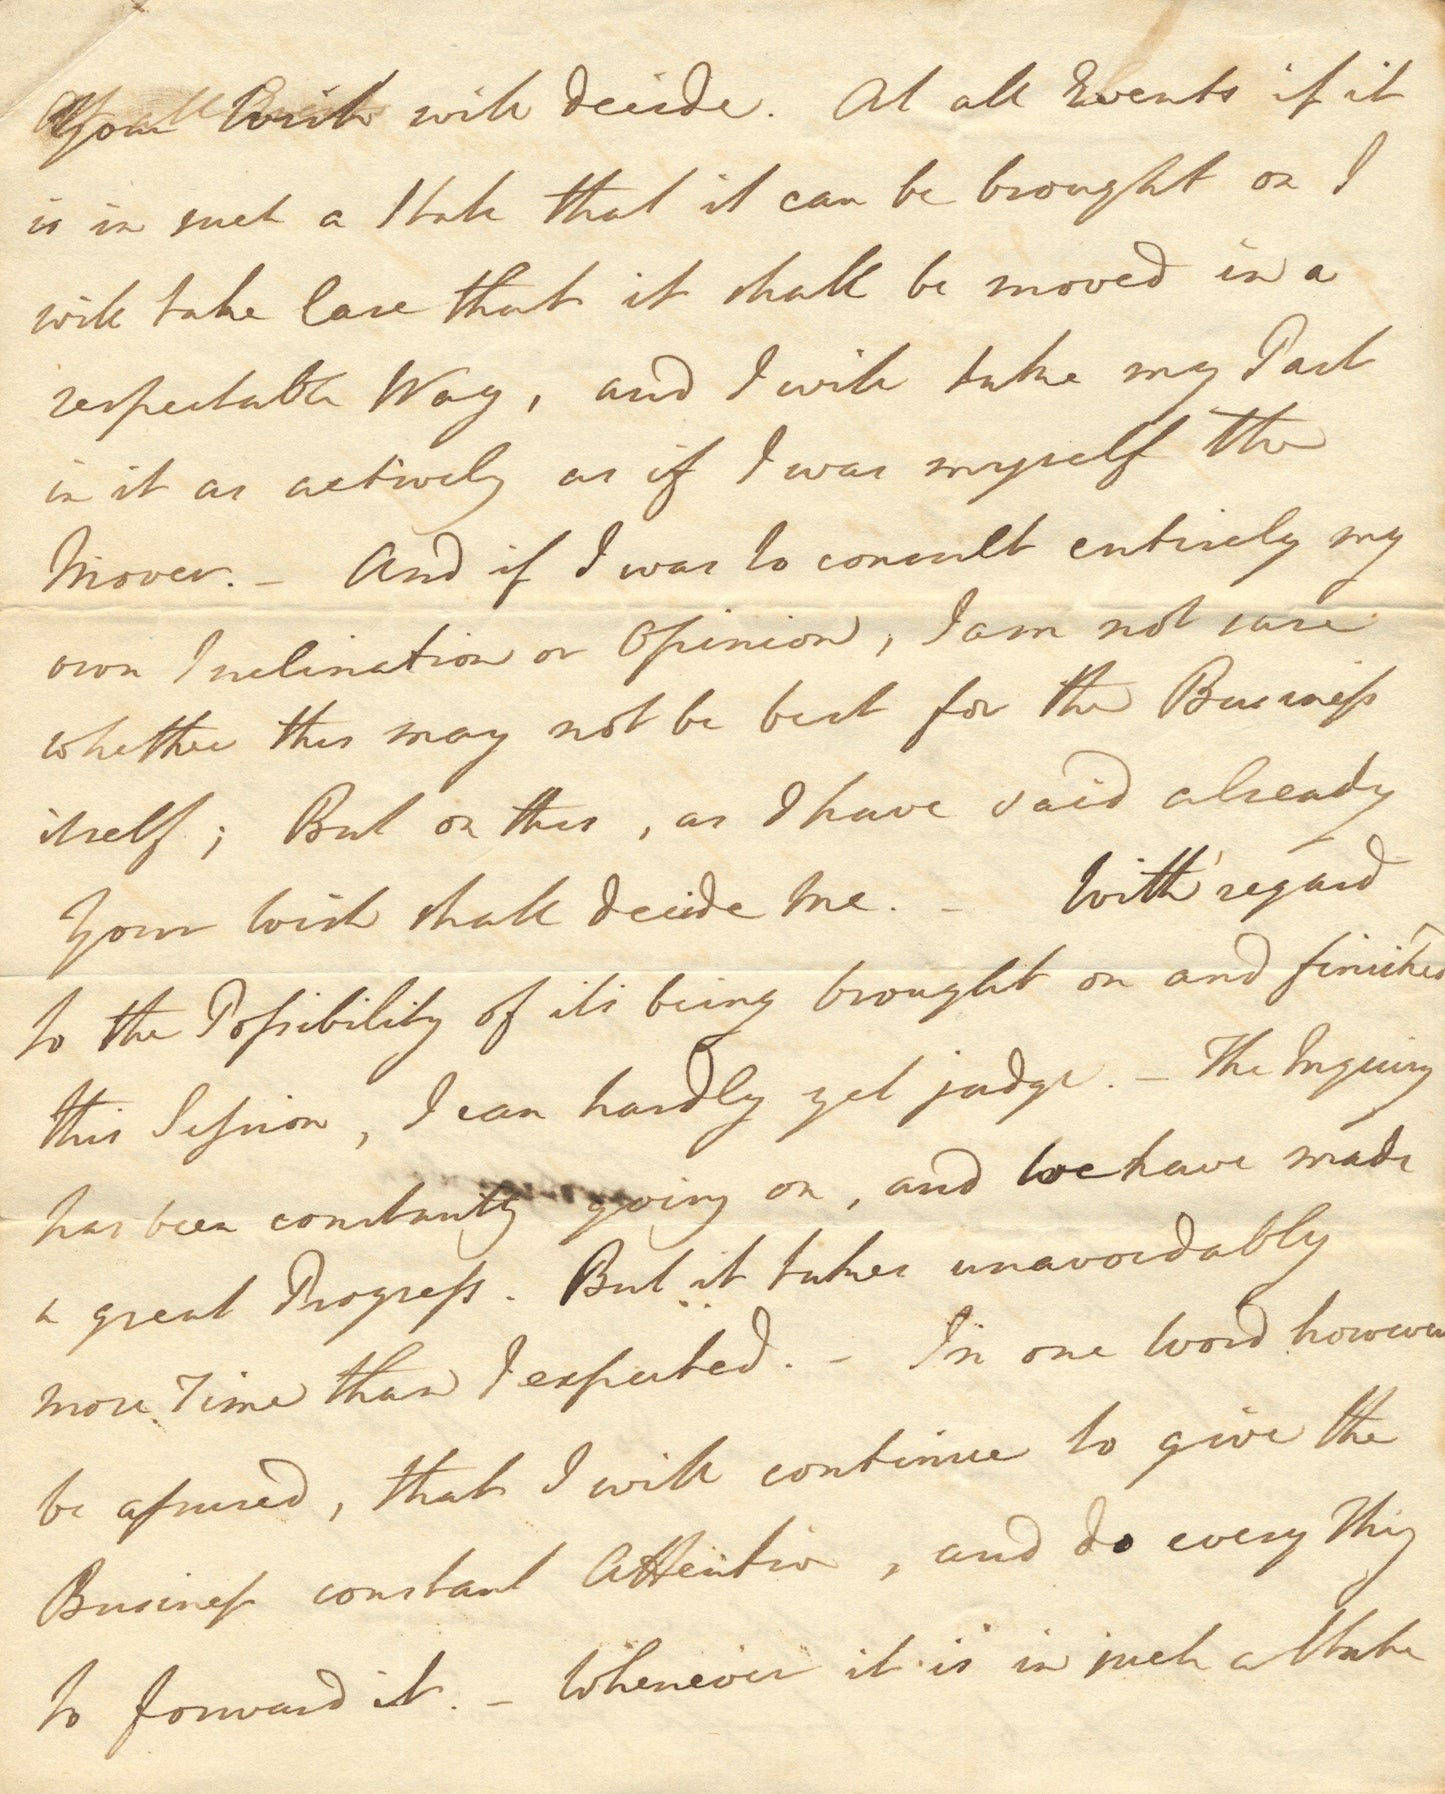 Your Wish will decide. At all Events if it
is in such a State that it can be brought on I
will take Care that it shall be moved in a
respectable Way, and I will take my Part
in it as actively as if I was myself the
Mover. – And if I was to consult entirely my
own Inclination or Opinion, I am not sure
whether this may not be best for the Business
itself; But on this, as I have said already
Your Wish shall decide Me. – With regard
to the Possibility of its being brought on and finished
this Session, I can hardly yet judge. – The Inquiry
has been constantly going on, and We have made
a great Progress. But it takes unavoidably
more Time than I expected. – In one Word however
be assured, that I will continue to give the
Business constant Attention, and do every Thing
to forward it. – Whenever it is in such a State